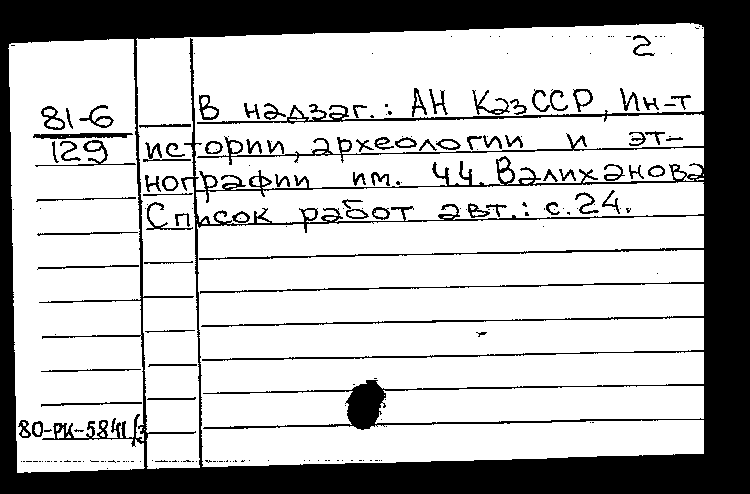 2
81-6
129
В надзаг.: АН КазССР, Ин-т
истории, археологии и эт-
нографии им. Ч.Ч. Валиханова
Список работ авт.: с.24.
80-РК-5841/3